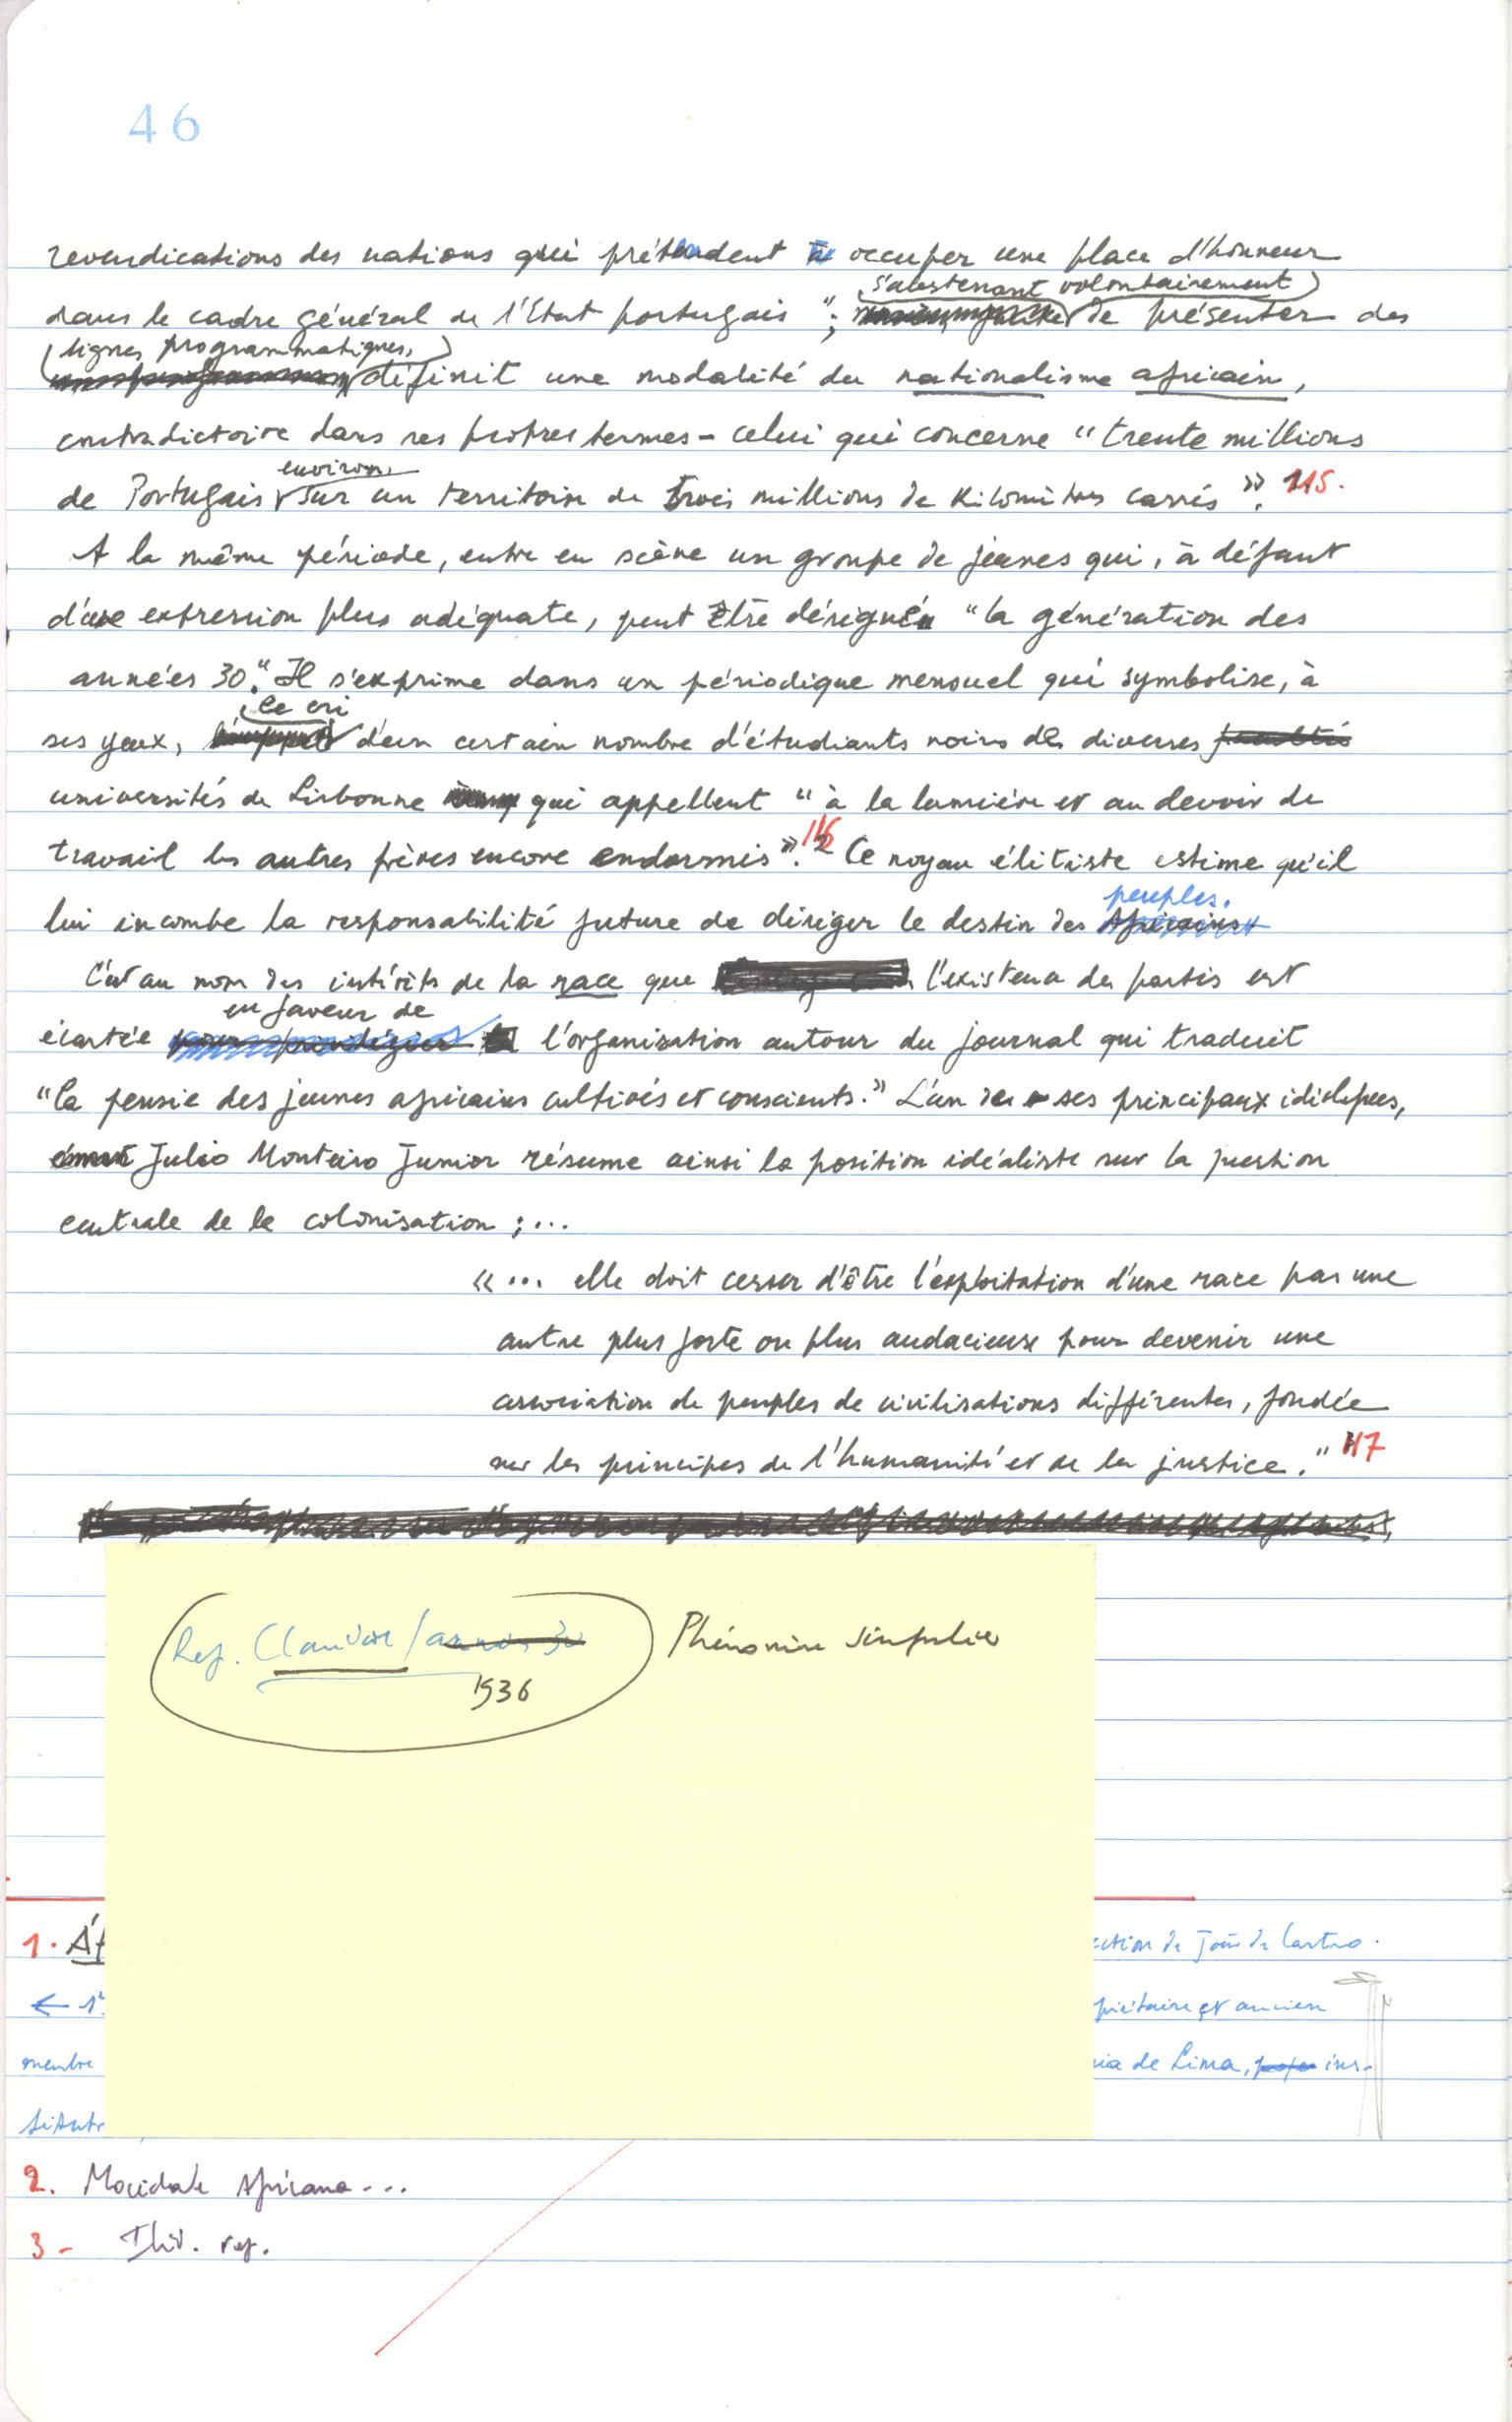 46
revendications des nations qui prétendent occuper une place d'honneur
s'abstenant volontairement
dans le cadre général de l'Etat portugais "; de présenter des
lignes programmatiques,
définit une modalité du nationalisme africain,
contradictoire dans ses propres termes - celui qui concerne "trente millions
environ
de Portugais sur un territoire de trois millions de kilomètres carrés". 115.
A la même période, entre en scène un groupe de jeunes qui, à défaut
d'une expression plus adéquate, peut être désigné "la génération des
années 30". Il s'exprime dans un périodique mensuel qui symbolise, à
le cri
ses yeux, d'un certain nombre d'étudiants noirs des diverses facultés
universités de Lisbonne qui appellent "à la lumière et au devoir de
travail les autres frères encore endormis". 116 2 Ce noyau élitiste estime qu'il
peuples.
lui incombe la responsabilité future de diriger le destin des Africains
C'est au nom des intérêts de la race que l'existence de partis est
en faveur de
écartée l'organisation autour du journal qui traduit
"la pensée des jeunes africains cultivés et conscients." L'un de ses principaux idéologues,
Julio Monteiro Junior résume ainsi la position idéaliste sur la question
centrale de la colonisation ; ...
« ... elle doit cesser d'être l'exploitation d'une race par une
autre plus forte ou plus audacieuse pour devenir une
association de peuples de civilisations différentes, fondée
sur les principes de l'humanité et de la justice." 117
Ref. Claude / années 30 Phénomène singulier
1936
1. Áf ction de João de Castro.
← 1 priétaire et ancien
membre ia de Lima, ins-
titut
2. Mocidade Africana...
3 - Ibid. ref.